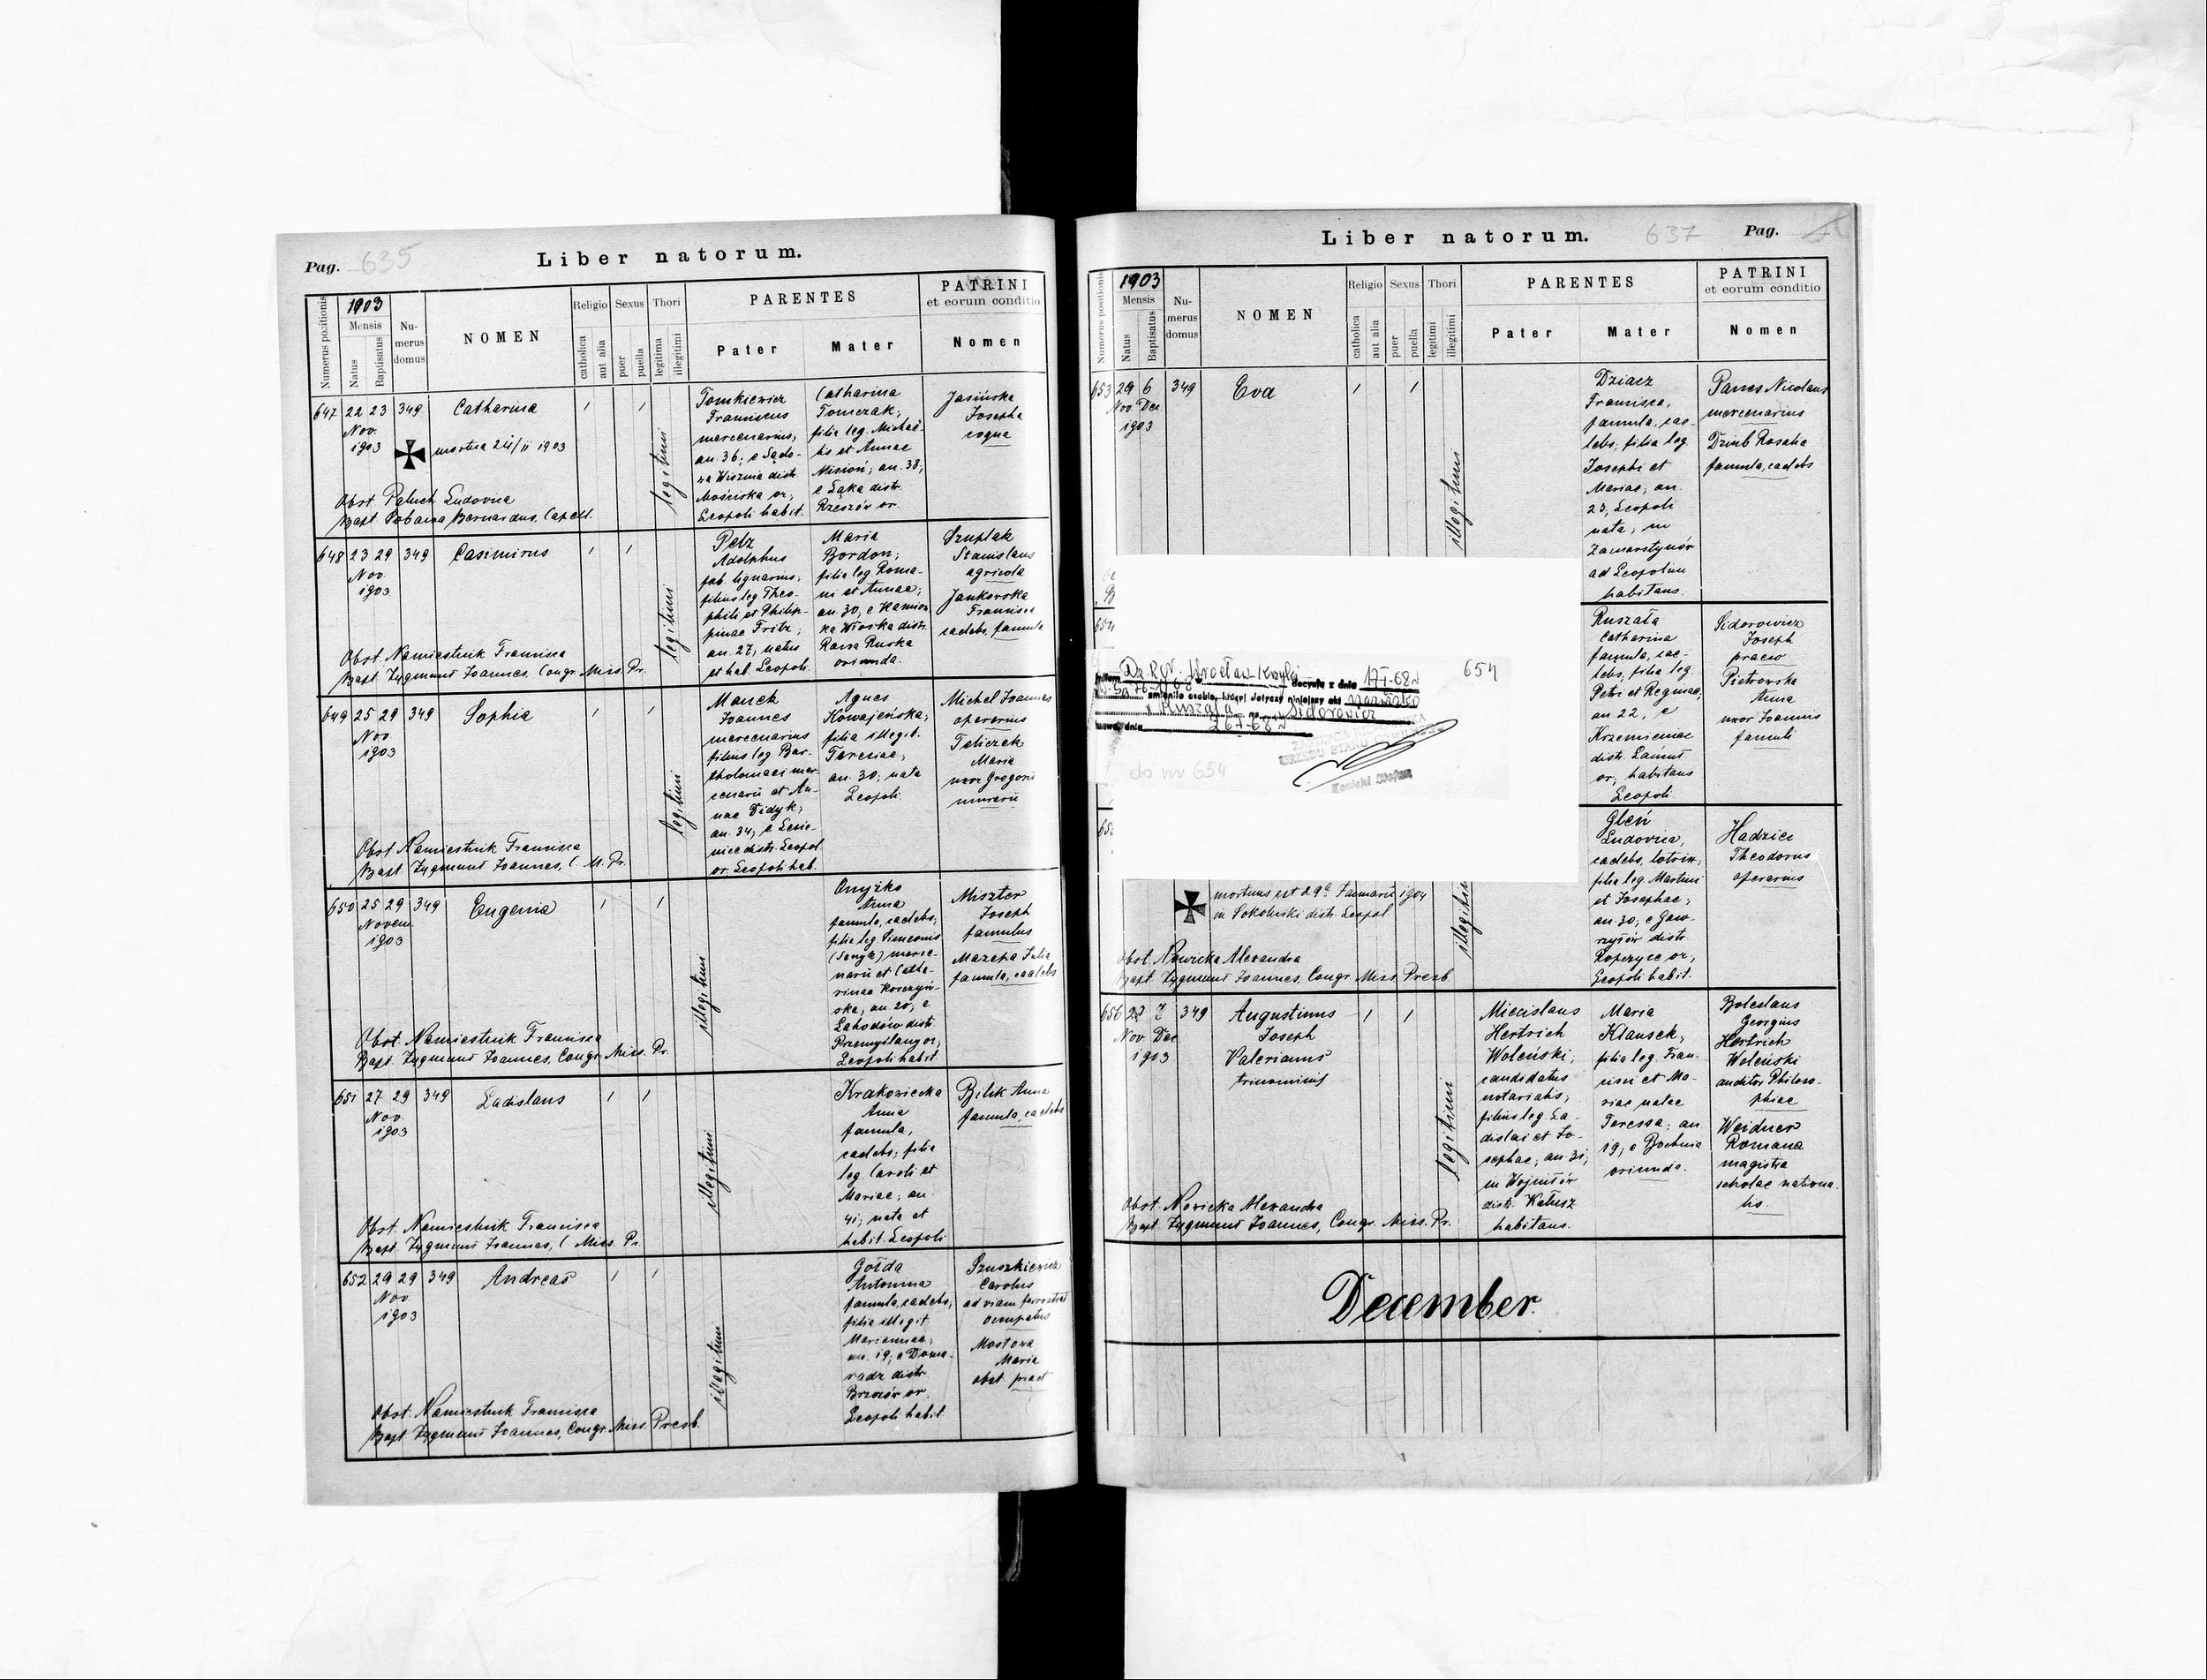 Pag. 635
Liber natorum.
Numerus positionis
1903
Mensis
Natus
Baptisatus
Nu-
merus
domus
NOMEN
Religio
catholica
aut alia
Sexus
puer
puella
Thori
legitima
illegitimi
PARENTES
Pater
Mater
PATRINI
et eorum conditio
Nomen
647 22 23 349 Catharina
Nov.
1903
mortua 24/II 1903
legitimi
Tomkiewicz
Franciscus
mercenarius,
an. 36; e Sądo-
wa Wisznia distr.
Mościska or;
Leopoli habit.
Catharina
Tomczak;
filia leg. Michaë-
lis et Annae
Misioń; an. 38;
e Łąka distr.
Rzeszów or.
Jasińska
Josepha
coqua
Obst. Paluch Ludovica
Bapt. Bernardus, Capell.
648 23 29 349 Casimirus
Nov.
1903
legitimi
Petz
Adolphus
fab. lignarius,
filius leg. Theo-
phili et Philip-
pinae Fritz;
an. 27, natus
et hab. Leopoli
Maria
Bordon;
filia leg. Roma-
ni et Annae;
an. 30; e Kamion
ka Wołoska distr.
Rawa Ruska
oriunda.
Szuplak
Stanislaus
agricola
Jankowska
Francisca
caelebs, famula
Obst. Namiestnik Francisca
Bapt. Zygmunt Joannes, Congr. Miss. Pr.
649 25 29 349 Sophia
Nov
1903
legitimi
Manek
Joannes
mercenarius
filius leg. Bar-
tholomaei mer-
cenarii et An-
nae Didyk;
an. 34; e Lesie-
nice distr. Leopol
or. Leopoli hab.
Agnes
filia illegit.
Teresiae;
an. 30; nata
Leopoli
Michel Joannes
operarius
Maria
uxor Gregorii
murarii
Obst. Namiestnik Francisca
Bapt. Zygmunt Joannes, C. M. Pr.
650 25 29 349 Eugenia
Novem
1903
illegitimi
Onyżko
Anna
famula, caelebs,
filia leg. Simeonis
merce-
narii et Catha-
rinae Korczyń-
ska, an. 20; e
Lahodów distr.
Przemyślany or;
Leopoli habit
Miszter
Joseph
famulus
Mazepa Julia
famula, caelebs
Obst. Namiestnik Francisca
Bapt. Zygmunt Joannes, Congr. Miss. Pr.
651 27 29 349 Ladislaus
Nov.
1903
illegitimi
Krakowiecka
Anna
famula,
caelebs; filia
leg. Caroli et
Mariae; an.
41; nata et
habit. Leopoli
Bilik Anna
famula, caelebs
Obst. Namiestnik Francisca
Bapt. Zygmunt Joannes, C. Miss. Pr.
652 29 29 349 Andreas
Nov.
1903
illegitimi
Gołda
Antonina
famula, caelebs,
filia illegit
Mariannae;
an. 19; e Doma-
radz distr.
Brzozów or.
Leopoli habit
Pruszkiewicz
Carolus
ad viam ferream
occupatus
Mostowa
Maria
obst. pract
Obst. Namiestnik Francisca
Bapt. Zygmunt Joannes, Congr. Miss. Presb.
Liber natorum.
637
Pag.
Numerus positionis
1903
Mensis
Natus
Baptisatus
Nu-
merus
domus
NOMEN
Religio
catholica
aut alia
Sexus
puer
puella
Thori
legitimi
illegitimi
PARENTES
Pater
Mater
PATRINI
et eorum conditio
Nomen
653 29 6 349 Eva
Nov Dec
1903
illegitimi
Dziacz
Francisca,
famula, cae-
lebs, filia leg
Josephi et
Mariae; an.
23; Leopoli
nata; in
Zamarstynów
ad Leopolim
habitans.
Panas Nicolaus
mercenarius
Dziub Rosalia
famula, caelebs
654
Dz. R. N. Wrocław-Krzyki
decyzją z dnia 17-I-68r
zmieniło osobie, której dotyczy niniejszy akt nazwisko
Ruszała na Sidorowicz
dnia 26-I-68r
URZĘDU STANU CYWILNEGO
654
do nr 654
Ruszała
Catharina
famula, cae-
lebs, filia leg.
Petri et Reginae;
an. 22; e
Krzemienice
distr. Łańcut
or; habitans
Leopoli.
Sidorowicz
Joseph
praeco
Pietrowska
Anna
uxor Joannis
famuli
mortuus est 29ª Januarii 1904
in Sokolniki distr. Leopol
illegitimi
Gleń
Ludovica,
caelebs, lotrix,
filia leg. Martini
et Josephae;
an. 30; e Gaw-
rzyłów distr.
Ropczyce or,
Leopoli habit.
Hadzicz
Theodorus
operarius
Obst. Nowicka Alexandra
Bapt. Zygmunt Joannes, Congr. Miss. Presb.
656 27 7 349 Augustinus
Nov Dec
1903
Joseph
Valerianus
trinominis
legitimi
Miecislaus
Hertrich
Woleński,
candidatus
notariatus,
filius leg. La-
dislai et Jo-
sephae; an. 31;
in Wojniłów
distr. Kałusz
habitans.
Maria
Klausek,
filia leg. Fran-
cisci et Ma-
riae natae
Teressa; an
19; e Bochnia
oriunda.
Boleslaus
Georgius
Hertrich
Woleński
auditor Philoso-
phiae
Weidner
Romana
magistra
scholae nationa-
lis.
Obst. Nowicka Alexandra
Bapt. Zygmunt Joannes, Congr. Miss. Pr.
December.